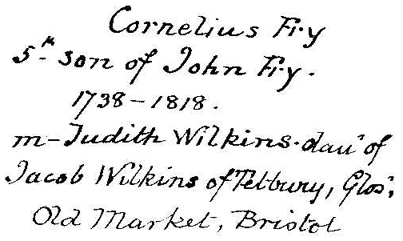 Cornelius Fry
5th son of John Fry.
1738-1818.
m-Judith Wilkins. daur of
Jacob Wilkins of Tetbury, Glos:
Old Market, Bristol